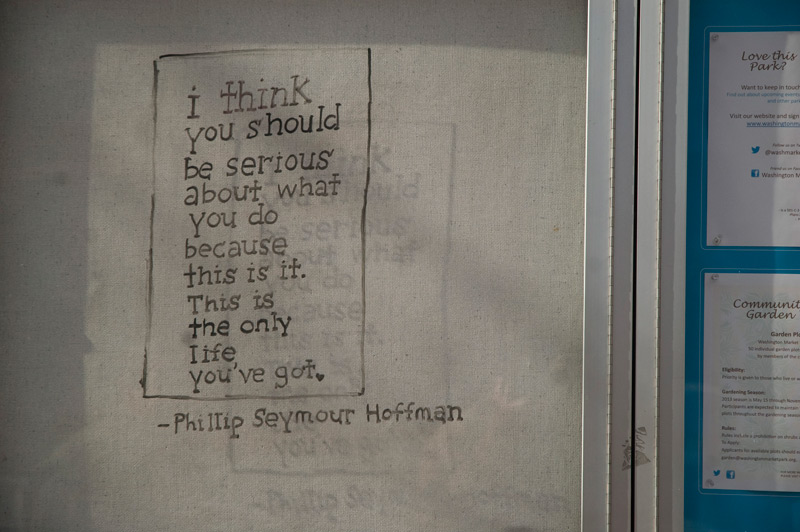 i think
you should
be serious
about what
you do
because
this is it.
This is
the only
life
you've got.
-Phillip Seymour Hoffman
Love this
Park?
Want to keep in touch
Find out about upcoming events
Visit our website and sign
@washmarke
Washington M
Communit
Garden
Garden Plo
Washington Market
Eligibility:
Gardening Season:
Rules: